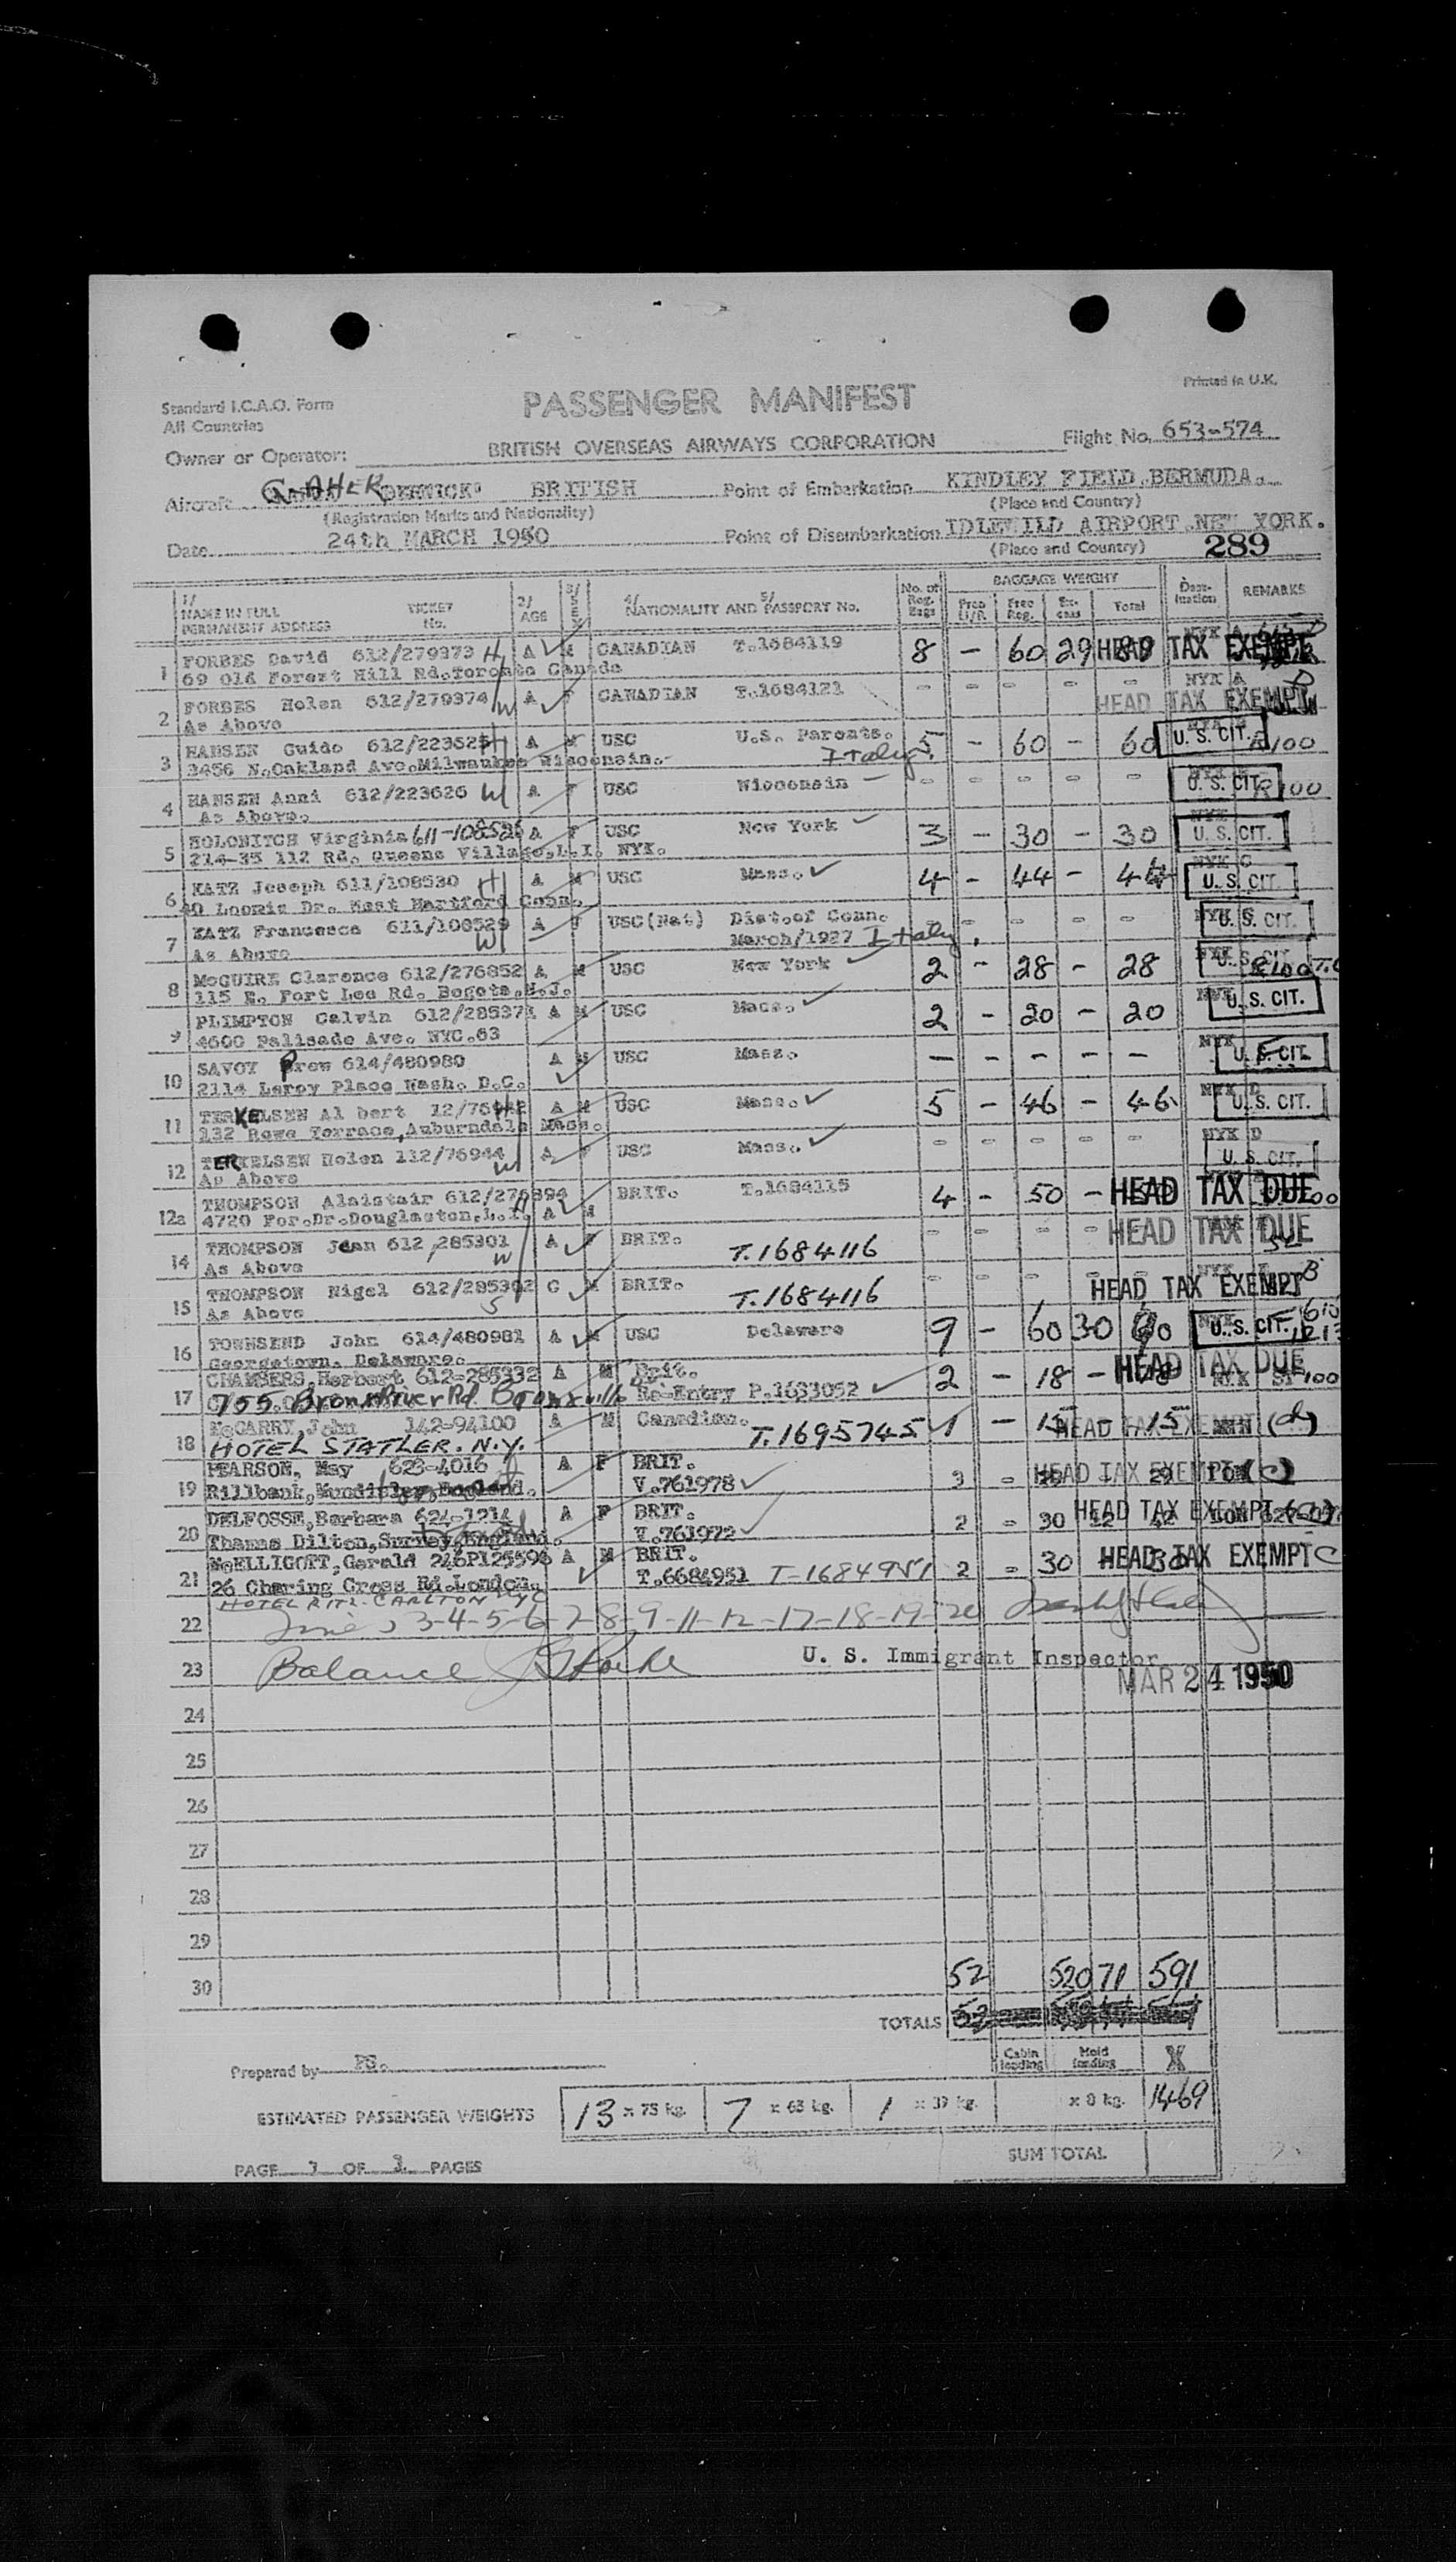 Standard I.C.A.O. Form
All Countries
PASSENGER MANIFEST
Printed in U.K.
Owner or Operator: BRITISH OVERSEAS AIRWAYS CORPORATION Flight No. 653-574
Aircraft G-AHEK BRITISH Point of Embarkation KINDLEY FIELD BERMUDA.
(Registration Marks and Nationality) (Place and Country)
Date 24th MARCH 1950 Point of Disembarkation IDLEWILD AIRPORT NEW YORK.
(Place and Country) 289
1/ NAME IN FULL PERMANENT ADDRESS TICKET No. 2/ AGE 3/ SEX 4/ 5/ NATIONALITY AND PASSPORT No. No. of Reg. Bags BAGGAGE WEIGHT Free Reg. Ex-cess Total Dest-ination REMARKS
1 FORBES David 612/279373 H A M CANADIAN T.1684119 8 - 60 29 89 HEAD TAX EXEMPT
69 Old Forest Hill Rd.Toronto Canada
2 FORBES Helen 612/279374 W A F CANADIAN T.1684121 - - - - - NYK A HEAD TAX EXEMPT
As Above
3 HANSEN Guido 612/223625 H A M USC U.S. Parents. Italy. 5 - 60 - 60 U. S. CIT. R100
3456 N.Oakland Ave.Milwaukee Wisconsin.
4 HANSEN Anni 612/223626 W A F USC Wisconsin - - - - - U. S. CIT. R100
As Above.
5 HOLONITCH Virginia 611-108526 A F USC New York 3 - 30 - 30 NYK U. S. CIT.
214-35 112 Rd. Queens Village,L.I. NYK.
6 KATZ Joseph 611/108530 H A M USC Mass. 4 - 44 - 44 NYK C U. S. CIT.
40 Loomis Dr. East Hartford Conn.
7 KATZ Francesca 611/108529 W A F USC(Nat) Dist.of Conn. - - - - - NYK C U. S. CIT.
As Above March/1927 Italy.
8 McGUIRE Clarence 612/276852 A M USC New York 2 - 28 - 28 NYK U. S. CIT.
115 E. Fort Lee Rd. Bogota,N.J.
9 PLIMPTON Calvin 612/285371 A M USC Mass. 2 - 20 - 20 NYK U. S. CIT.
4600 Palisade Ave. NYC.63
10 SAVOY Prew 614/480980 A M USC Mass. - - - - - NYK U. S. CIT.
2114 Leroy Place Wash. D.C.
11 TERKELSEN Al bert A M USC Mass. 5 - 46 - 46 NYK D U. S. CIT.
132 Rowe Terrace,Auburndale Mass.
12 TERKELSEN Helen 112/76944 W A F USC Mass. - - - - - NYK D U. S. CIT.
As Above
12a THOMPSON Alaistair 612/276894 H A M BRIT. T.1684115 4 - 50 - HEAD TAX DUE
4720 For.Dr.Douglaston,L.I.
14 THOMPSON Jean 612/285301 W A F BRIT. T.1684116 - - - HEAD TAX DUE
As Above
15 THOMPSON Nigel 612/285302 S C M BRIT. T.1684116 - - - HEAD TAX EXEMPT
As Above
16 TOWNSEND John 614/480981 A M USC Delaware 9 - 60 30 90 NYK U. S. CIT.
Georgetown. Delaware.
17 CHAMBERS,Herbert 612-285332 A M Brit. 2 - 18 - HEAD TAX DUE
755 Bronx River Rd. Bronxville Re-Entry P.1633052
18 McCARRY,John 142-94100 A M Canadian. T.1695745 1 - 15 - 15 HEAD TAX EXEMPT
HOTEL STATLER. N.Y.
19 PEARSON, May 623-4016 A F BRIT. 3 - 29 HEAD TAX EXEMPT (C)
V.761978
20 DELFOSSE,Barbara 624-1214 A F BRIT. 2 - 30 12 42 HEAD TAX EXEMPT
Thames Dilton,Surrey,England. V.761972
21 McELLIGOTT,Gerald 246P125596 A M BRIT. 2 - 30 HEAD TAX EXEMPT C
26 Charing Cross Rd.London. T.6684951 T-1684951
HOTEL RITZ-CARLTON NYC
22 3-4-5-6-7-8-9-11-12-17-18-19-20
23 Balance U. S. Immigrant Inspector
MAR 24 1950
24
25
26
27
28
29
30 52 520 71 591
TOTALS
Cabin loading Hold loading X
Prepared by PS.
ESTIMATED PASSENGER WEIGHTS 13 x 75 kg. 7 x 65 kg. 1 x 39 kg. x 8 kg. 1469
SUM TOTAL
PAGE 1 OF 1 PAGES